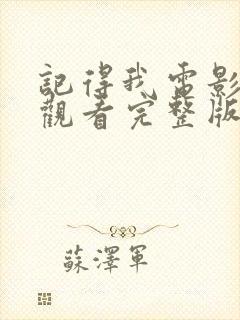 記得我電影
觀看完整版
蘇澤軍